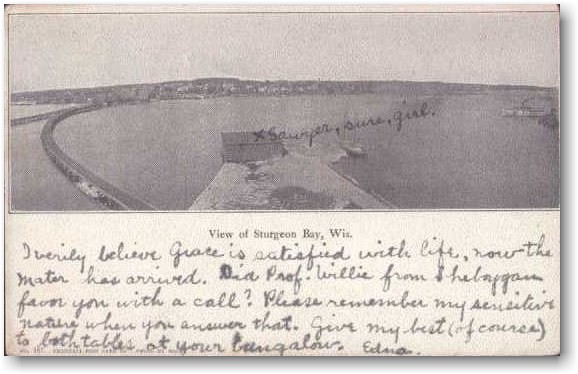 x Sawyer, sure, girl.
View of Sturgeon Bay, Wis.
I verily believe Grace is satisfied with life, now the
mater has arrived. Did Prof. Willie from Sheboygan
favor you with a call? Please remember my sensitive
nature when you answer that. Give my best (of course)
to both tables at your bungalow. Edna.